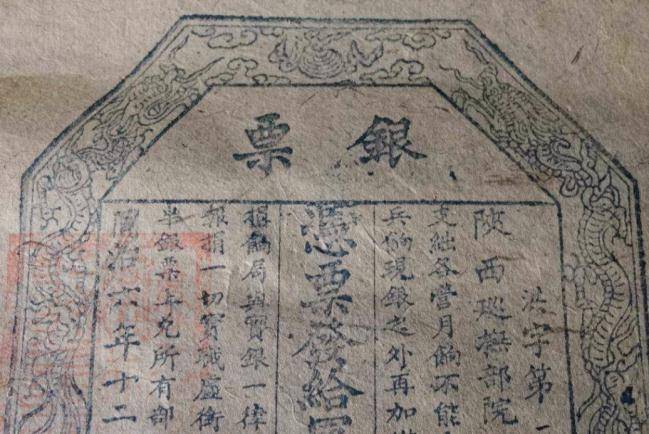 銀票
洪字第一
陝西巡撫部院
支絀各營月餉不能
兵餉現銀之外再加
憑票發給
捐輸局與實銀一律
報捐一切實職虛銜
半銀票半兌所有部
同治六年十二